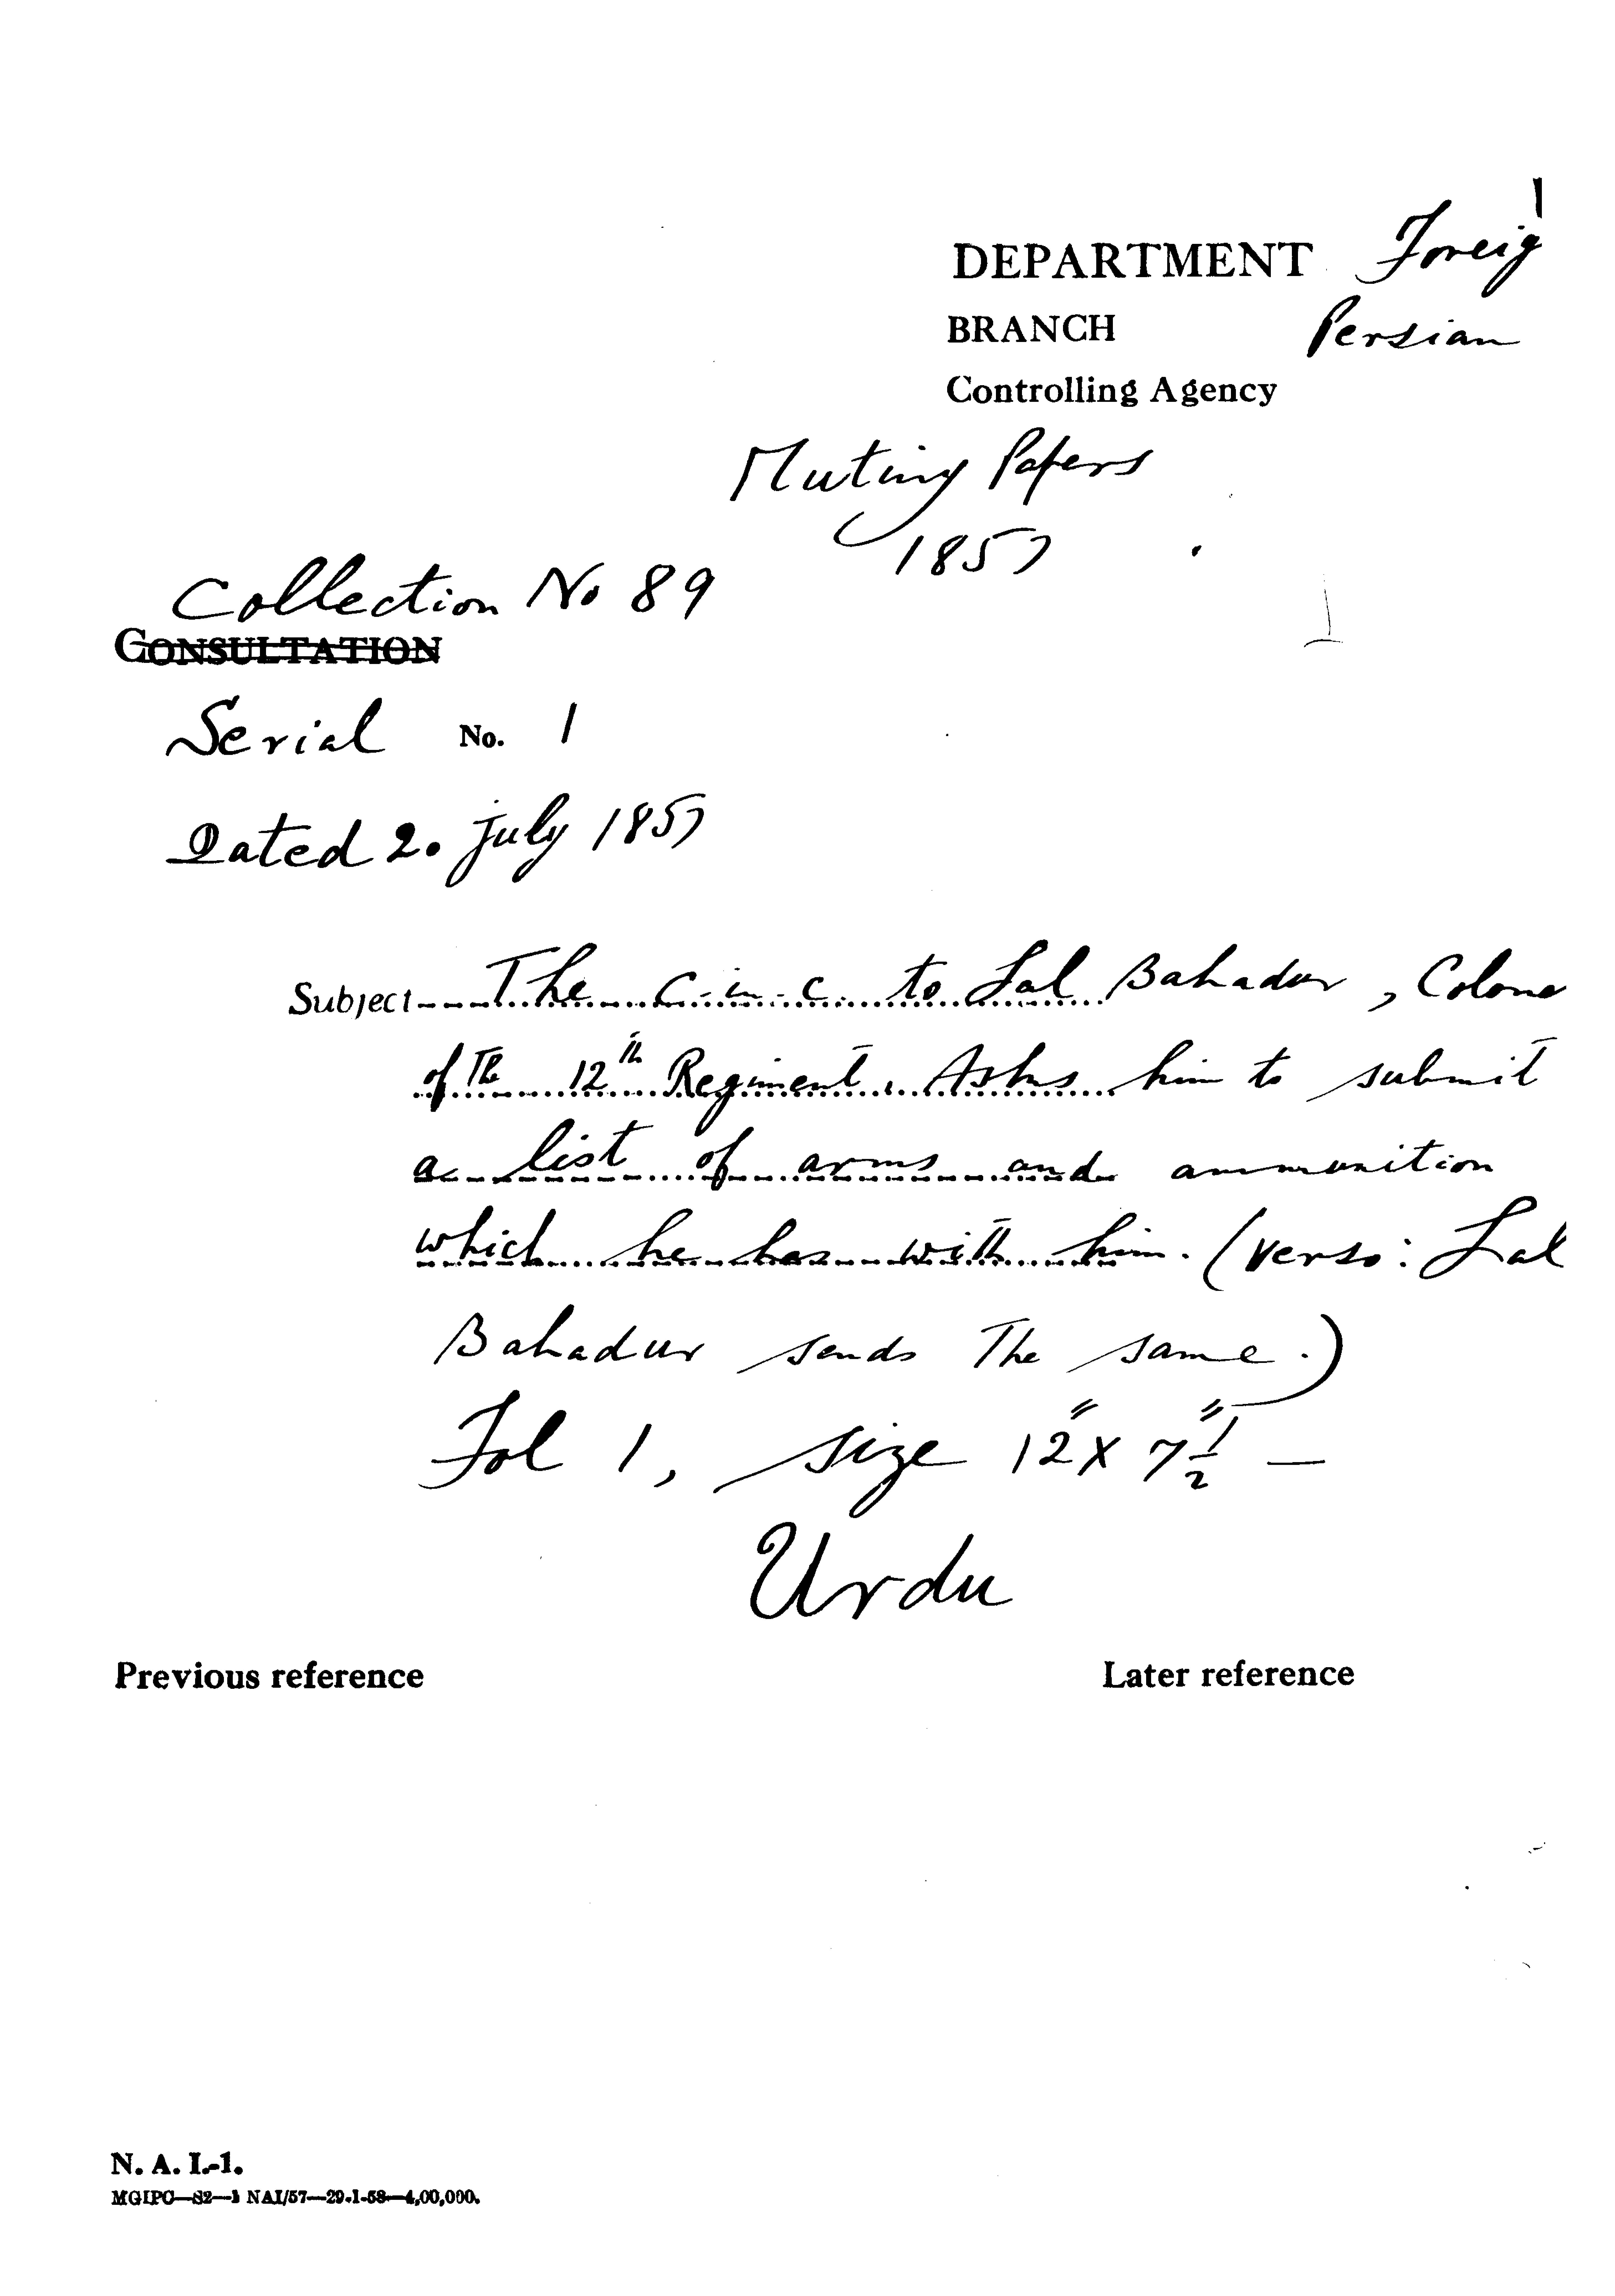 DEPARTMENT Foreig
BRANCH Persian
Controlling Agency
Mutiny Papers
1857
Collection No 89
CONSULTATION
Serial No. 1
Dated 20 July 1857
Subject The C-in-C to Lal Bahadur, Colone
of the 12th Regiment. Asks him to submit
a list of arms and ammunition
which he has with him. (verso: Lal
Bahadur sends the same.)
Fol 1, size 12" x 7 1/2" —
Urdu
Previous reference Later reference
N. A. I.-1.
MGIPC—S2—1 NAI/57—29-1-58—4,00,000.